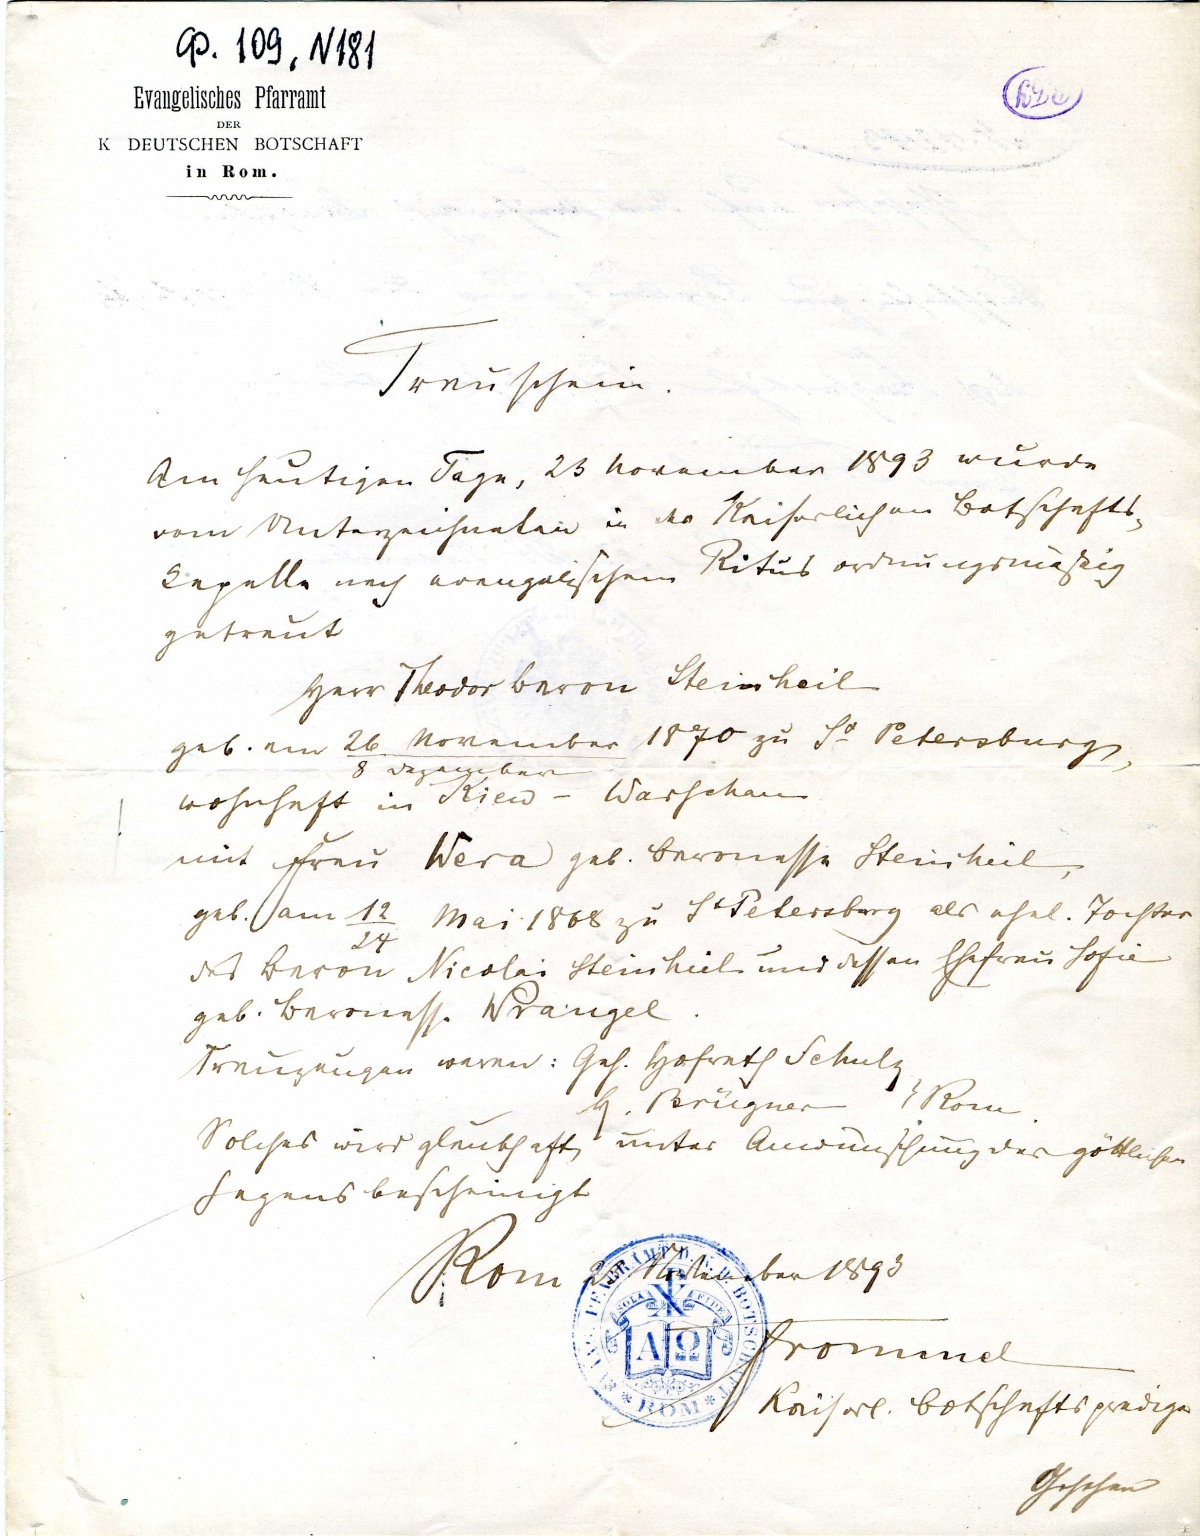 Ф. 109, N181
Evangelisches Pfarramt
DER
K DEUTSCHEN BOTSCHAFT
in Rom.
Trauschein.
Am heutigen Tage, 23 November 1893 wurde
vom Unterzeichneten in der Kaiserlichen Botschafts-
Capelle nach evangelischem Ritus ordnungsmäßig
getraut
Herr Theodor Baron Steinheil
geb. am 26 November 1870 zu St Petersburg,
8 Dezember
wohnhaft in Kiew – Warschau
mit Frau Wera geb. Baronesse Steinheil,
geb. am 12/24 Mai 1868 zu St Petersburg als ehel. Tochter
des Baron Nicolai Steinheil und dessen Ehefrau Sofie
geb. Baroness. Wrangel.
Trauzeugen waren: Geh. Hofrath Schulz
H. Brügner / Rom.
Solches wird glaubhaft, unter Anwünschung des göttlichen
Segens bescheinigt
Rom November 1893
EVANG. PFARRAMT D. K. D. BOTSCHAFT
SOLA FIDE
Α Ω
* ROM *
Frommel
Kaiserl. Botschaftsprediger
Gesehen